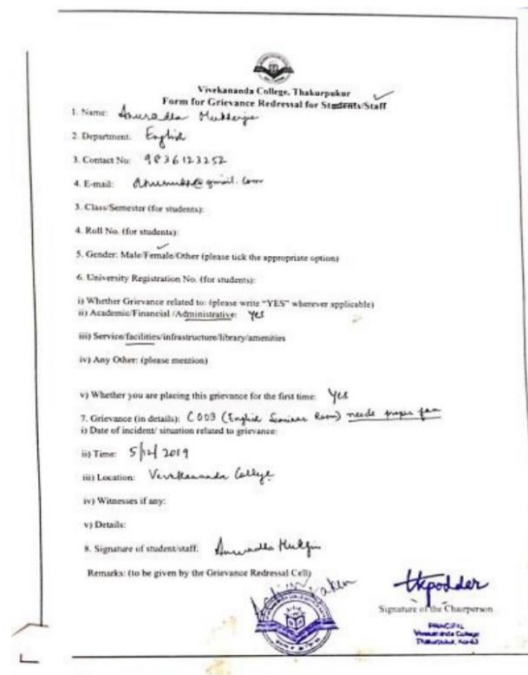 Vivekananda College, Thakurpukur
Form for Grievance Redressal for Students/Staff
1. Name: Anuradha Mukherjee
2. Department: English
3. Contact No: 9836123252
4. E-mail: @gmail.com
3. Class/Semester (for students):
4. Roll No. (for students):
5. Gender: Male/Female/Other (please tick the appropriate option)
6. University Registration No. (for students):
i) Whether Grievance related to: (please write "YES" wherever applicable)
ii) Academic/Financial /Administrative: Yes
iii) Service/facilities/infrastructure/library/amenities
iv) Any Other: (please mention)
v) Whether you are placing this grievance for the first time: Yes
7. Grievance (in details): C003 (English Seminar Room) needs proper fan
i) Date of incident/ situation related to grievance:
ii) Time: 5/12/2019
iii) Location: Vivekananda College
iv) Witnesses if any:
v) Details:
8. Signature of student/staff: Anuradha Mukherjee
Remarks: (to be given by the Grievance Redressal Cell)
Action taken
tkpodder
Signature of the Chairperson
PRINCIPAL
Vivekananda College
Thakurpukur, Kol-63